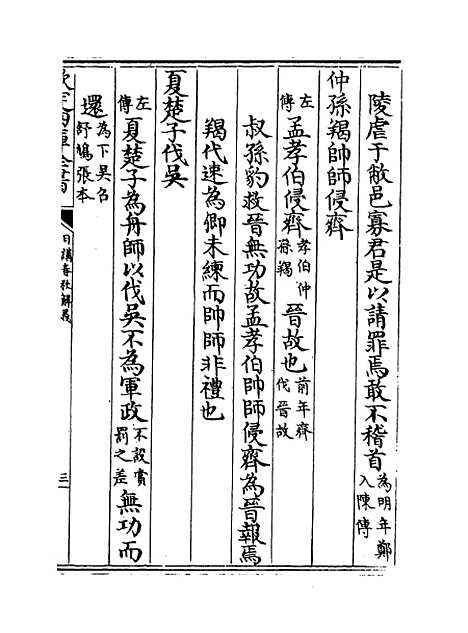 陵虐于敝邑寡君是以請罪焉敢不稽首為明年鄭入陳傳
仲孫羯帥師侵齊
左傳孟孝伯侵齊孝伯仲孫羯晉故也前年齊伐晉故
叔孫豹救晉無功故孟孝伯帥師侵齊為晉報焉
羯代速為卿未練而帥師非禮也
夏楚子伐吳
左傳夏楚子為舟師以伐吳不為軍政不設賞罰之差無功而
還為下吳召舒鳩張本
欽定四庫全書
日講春秋解義
三